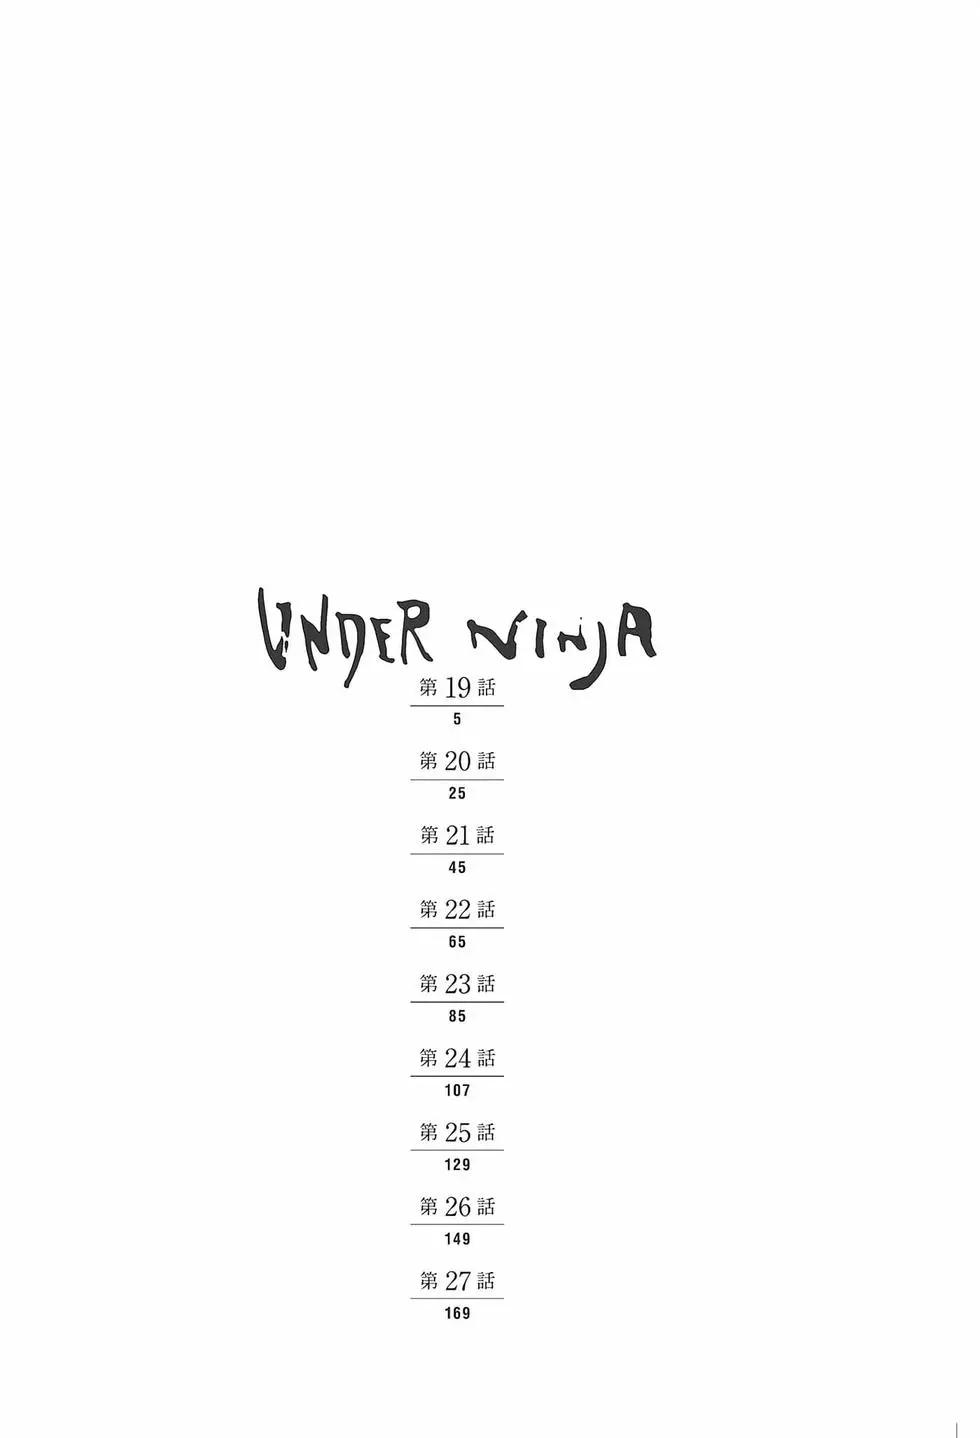 UNDER NINJA
第19話
5
第20話
25
第21話
45
第22話
65
第23話
85
第24話
107
第25話
129
第26話
149
第27話
169